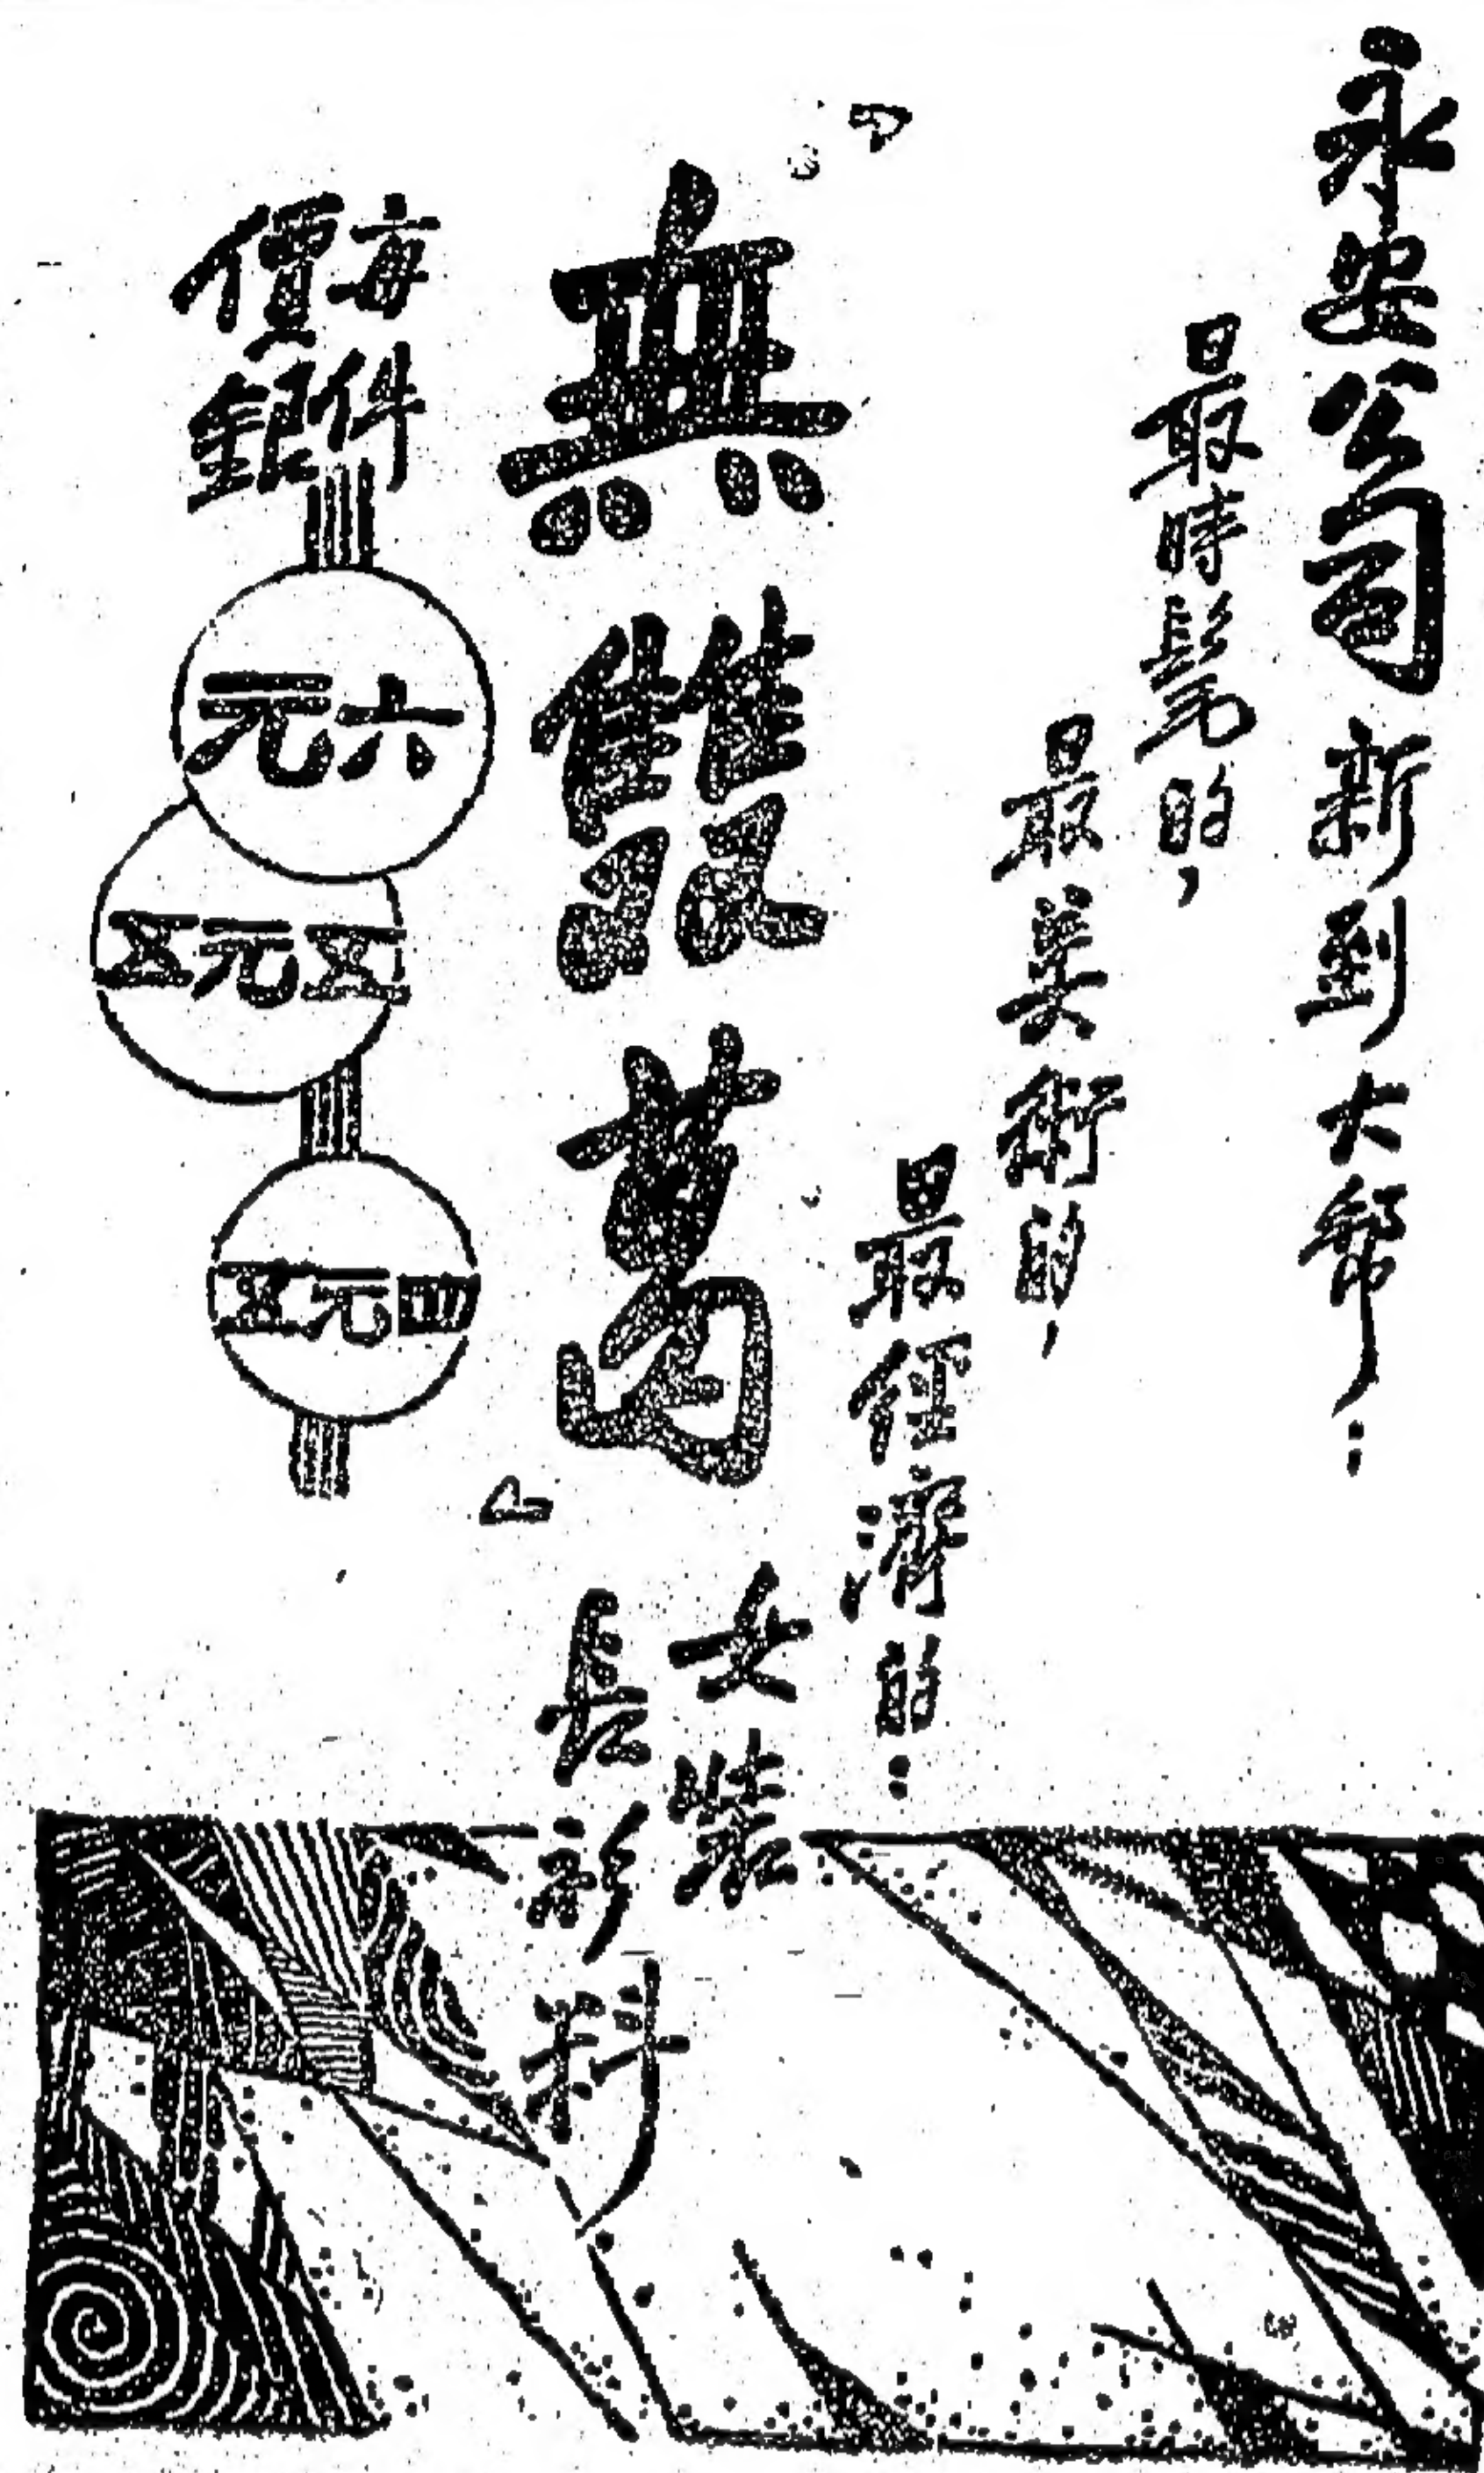 永安公司新到大幫：
最時髦的，
最美術的，
最經濟的：
「無雙葛」
女裝
長衫料
每件
價銀
六元
五元五
四元五